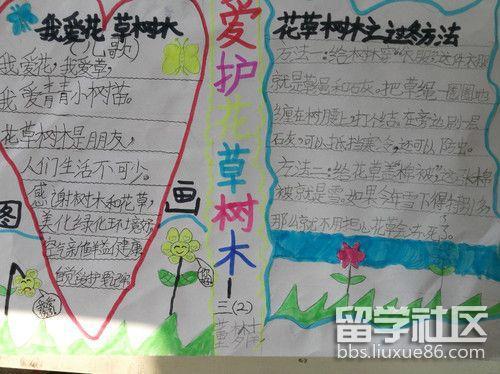 我爱花草树木
(儿歌)
我爱花,我爱草,
我爱青青小树苗。
花草树木是朋友,
人们生活不可少。
感谢树木和花草,
美化绿化环境好,
空气新鲜益健康
图
画
爱护花草树木
三(2)
花草树木之过冬方法
方法一:给树木穿"衣服",这件衣服
就是草绳和石灰。把草绳一圈圈地
缠在树腰上,打个结。在旁边刷一层
石灰,可以抵挡寒冷,还可以防虫。
方法二:给花草盖"棉被",这张棉
被就是雪。如果今年雪下得特别多,
那你就不用担心花草会冻死了。
留学社区
bbs.liuxue86.com